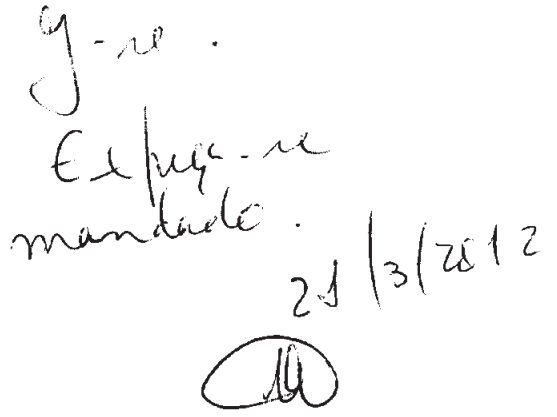 J-se.
Expeça-se
mandado.
21/3/2012